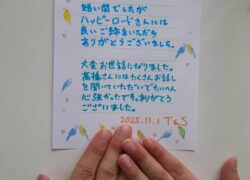 短い間でしたが
ハッピーロードさんには
良いご縁をいただき
ありがとうございました。
大変お世話になりました。
高橋さんにはたくさんお話し
を聞いていただいてもらい
心強かったです。ありがとう
ございました。
2025.11.1 T&S